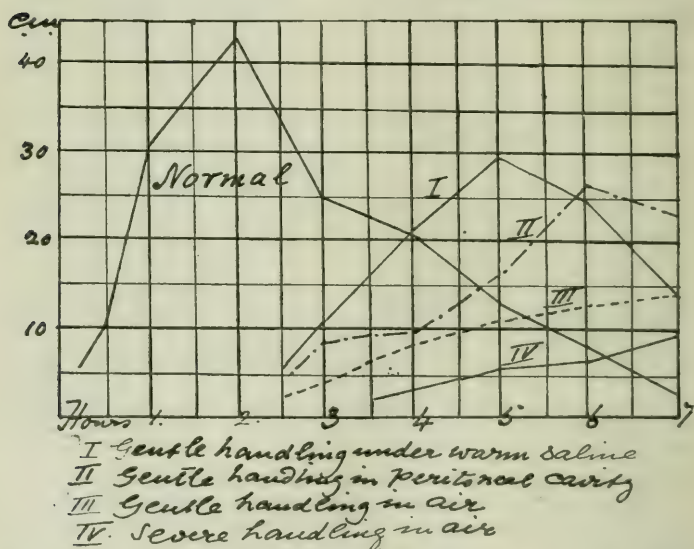 cm
40
30
Normal
I
II
20
III
10
IV
Hours 1. 2. 3 4 5 6 7
I Gentle handling under warm saline
II Gentle handling in Peritoneal cavity
III Gentle handling in air
IV. Severe handling in air